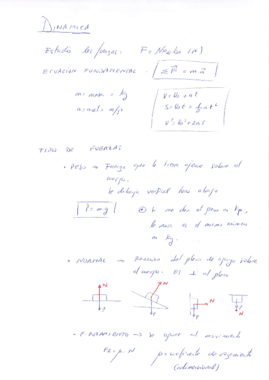 DINÁMICA
Estudia las fuerzas. F = Newton (N)
ECUACIÓN FUNDAMENTAL: ΣF = m·a
m = masa = kg
a = acel = m/s²
V = V₀ + at
S = V₀t + ½at²
V² = V₀² + 2as
TIPOS DE FUERZAS
• PESO → Fuerza que la tierra ejerce sobre el
cuerpo.
Se dibuja vertical hacia abajo
P = mg
si me dan el peso en kp,
la masa es el mismo número
en kg.
• NORMAL → Reacción del plano de apoyo sobre
el cuerpo. Es ⊥ al plano
N
P
N
P
N
P
N
P
• F. ROZAMIENTO → se opone al movimiento
FR = μ·N μ = coeficiente de rozamiento
(adimensional)